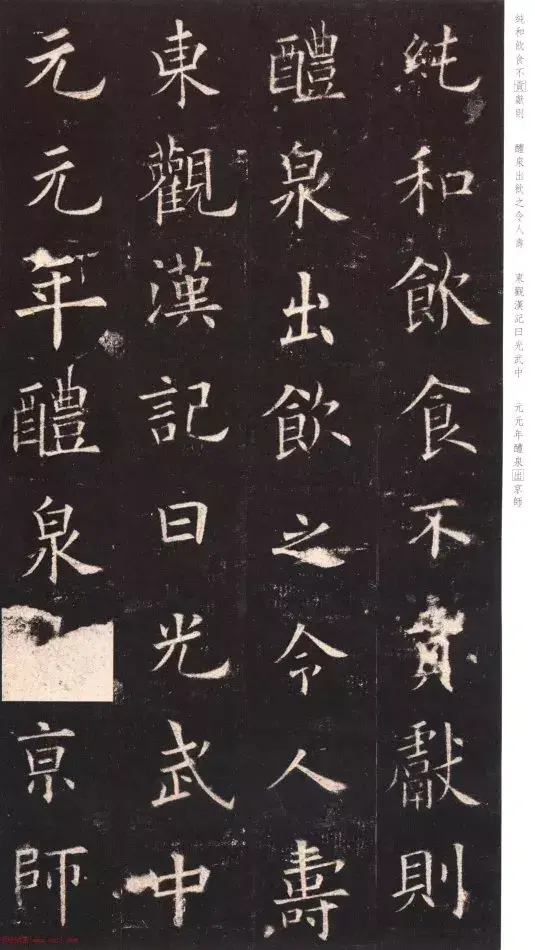 純和飲食不貢獻則　醴泉出飲之令人壽　東觀漢記曰光武中　元元年醴泉出京師
純和飲食不貢獻則
醴泉出飲之令人壽
東觀漢記曰光武中
元元年醴泉亰師